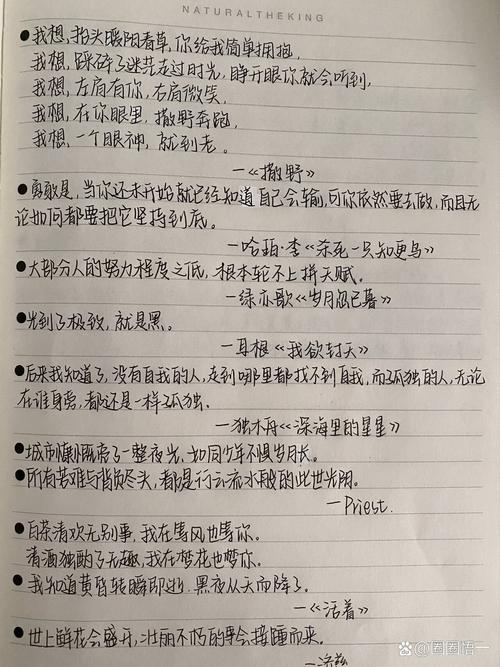 NATURALTHEKING
●我想,抬头暖阳春草,你给我简单拥抱,
我想,踩碎了迷茫走过时光,睁开眼你就会听到,
我想,左肩有你,右肩微笑,
我想,在你眼里,撒野奔跑,
我想,一个眼神,就到老。
—《撒野》
●勇敢是,当你还未开始就已经知道自己会输,可你依然要去做,而且无
论如何都要把它坚持到底。
—哈珀·李《杀死一只知更鸟》
●大部分人的努力程度之低,根本轮不上拼天赋。
—绿亦歌《岁月忽已暮》
●光到了极致,就是黑。
—耳根《我欲封天》
●后来我知道了,没有自我的人,走到哪里都找不到自我,而孤独的人,无论
在谁身旁,都还是一样孤独.
—独木舟《深海里的星星》
●城市慷慨亮了一整夜光,如同少年不惧岁月长。
●所有苦难与背负尽头,都是行云流水般的此世光阴。
—Priest.
●白茶清欢无别事,我在等风也等你。
清酒独酌了无趣,我在梦花也梦你.
●我知道黄昏转瞬即逝,黑夜从天而降了.
—《活着》
●世上鲜花会盛开,壮丽不朽的事会接踵而来.
@圈圈悟一